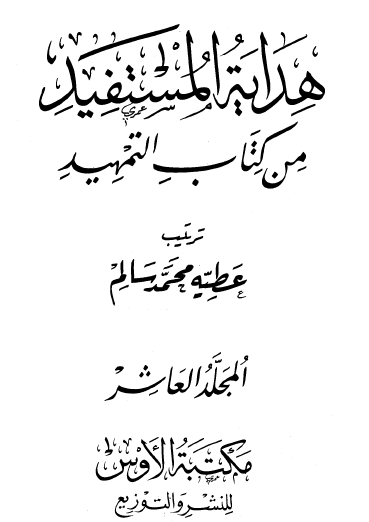 هِدَايَةُ المُسْتَفِيدِ
مِن كِتَابِ التَّمْهِيدِ
ترتيب
عطيّه محمّد سَالِم
المجَلَّدُ العَاشِر
مكتبَة الأوسْ
للنشرِ والتوزيع